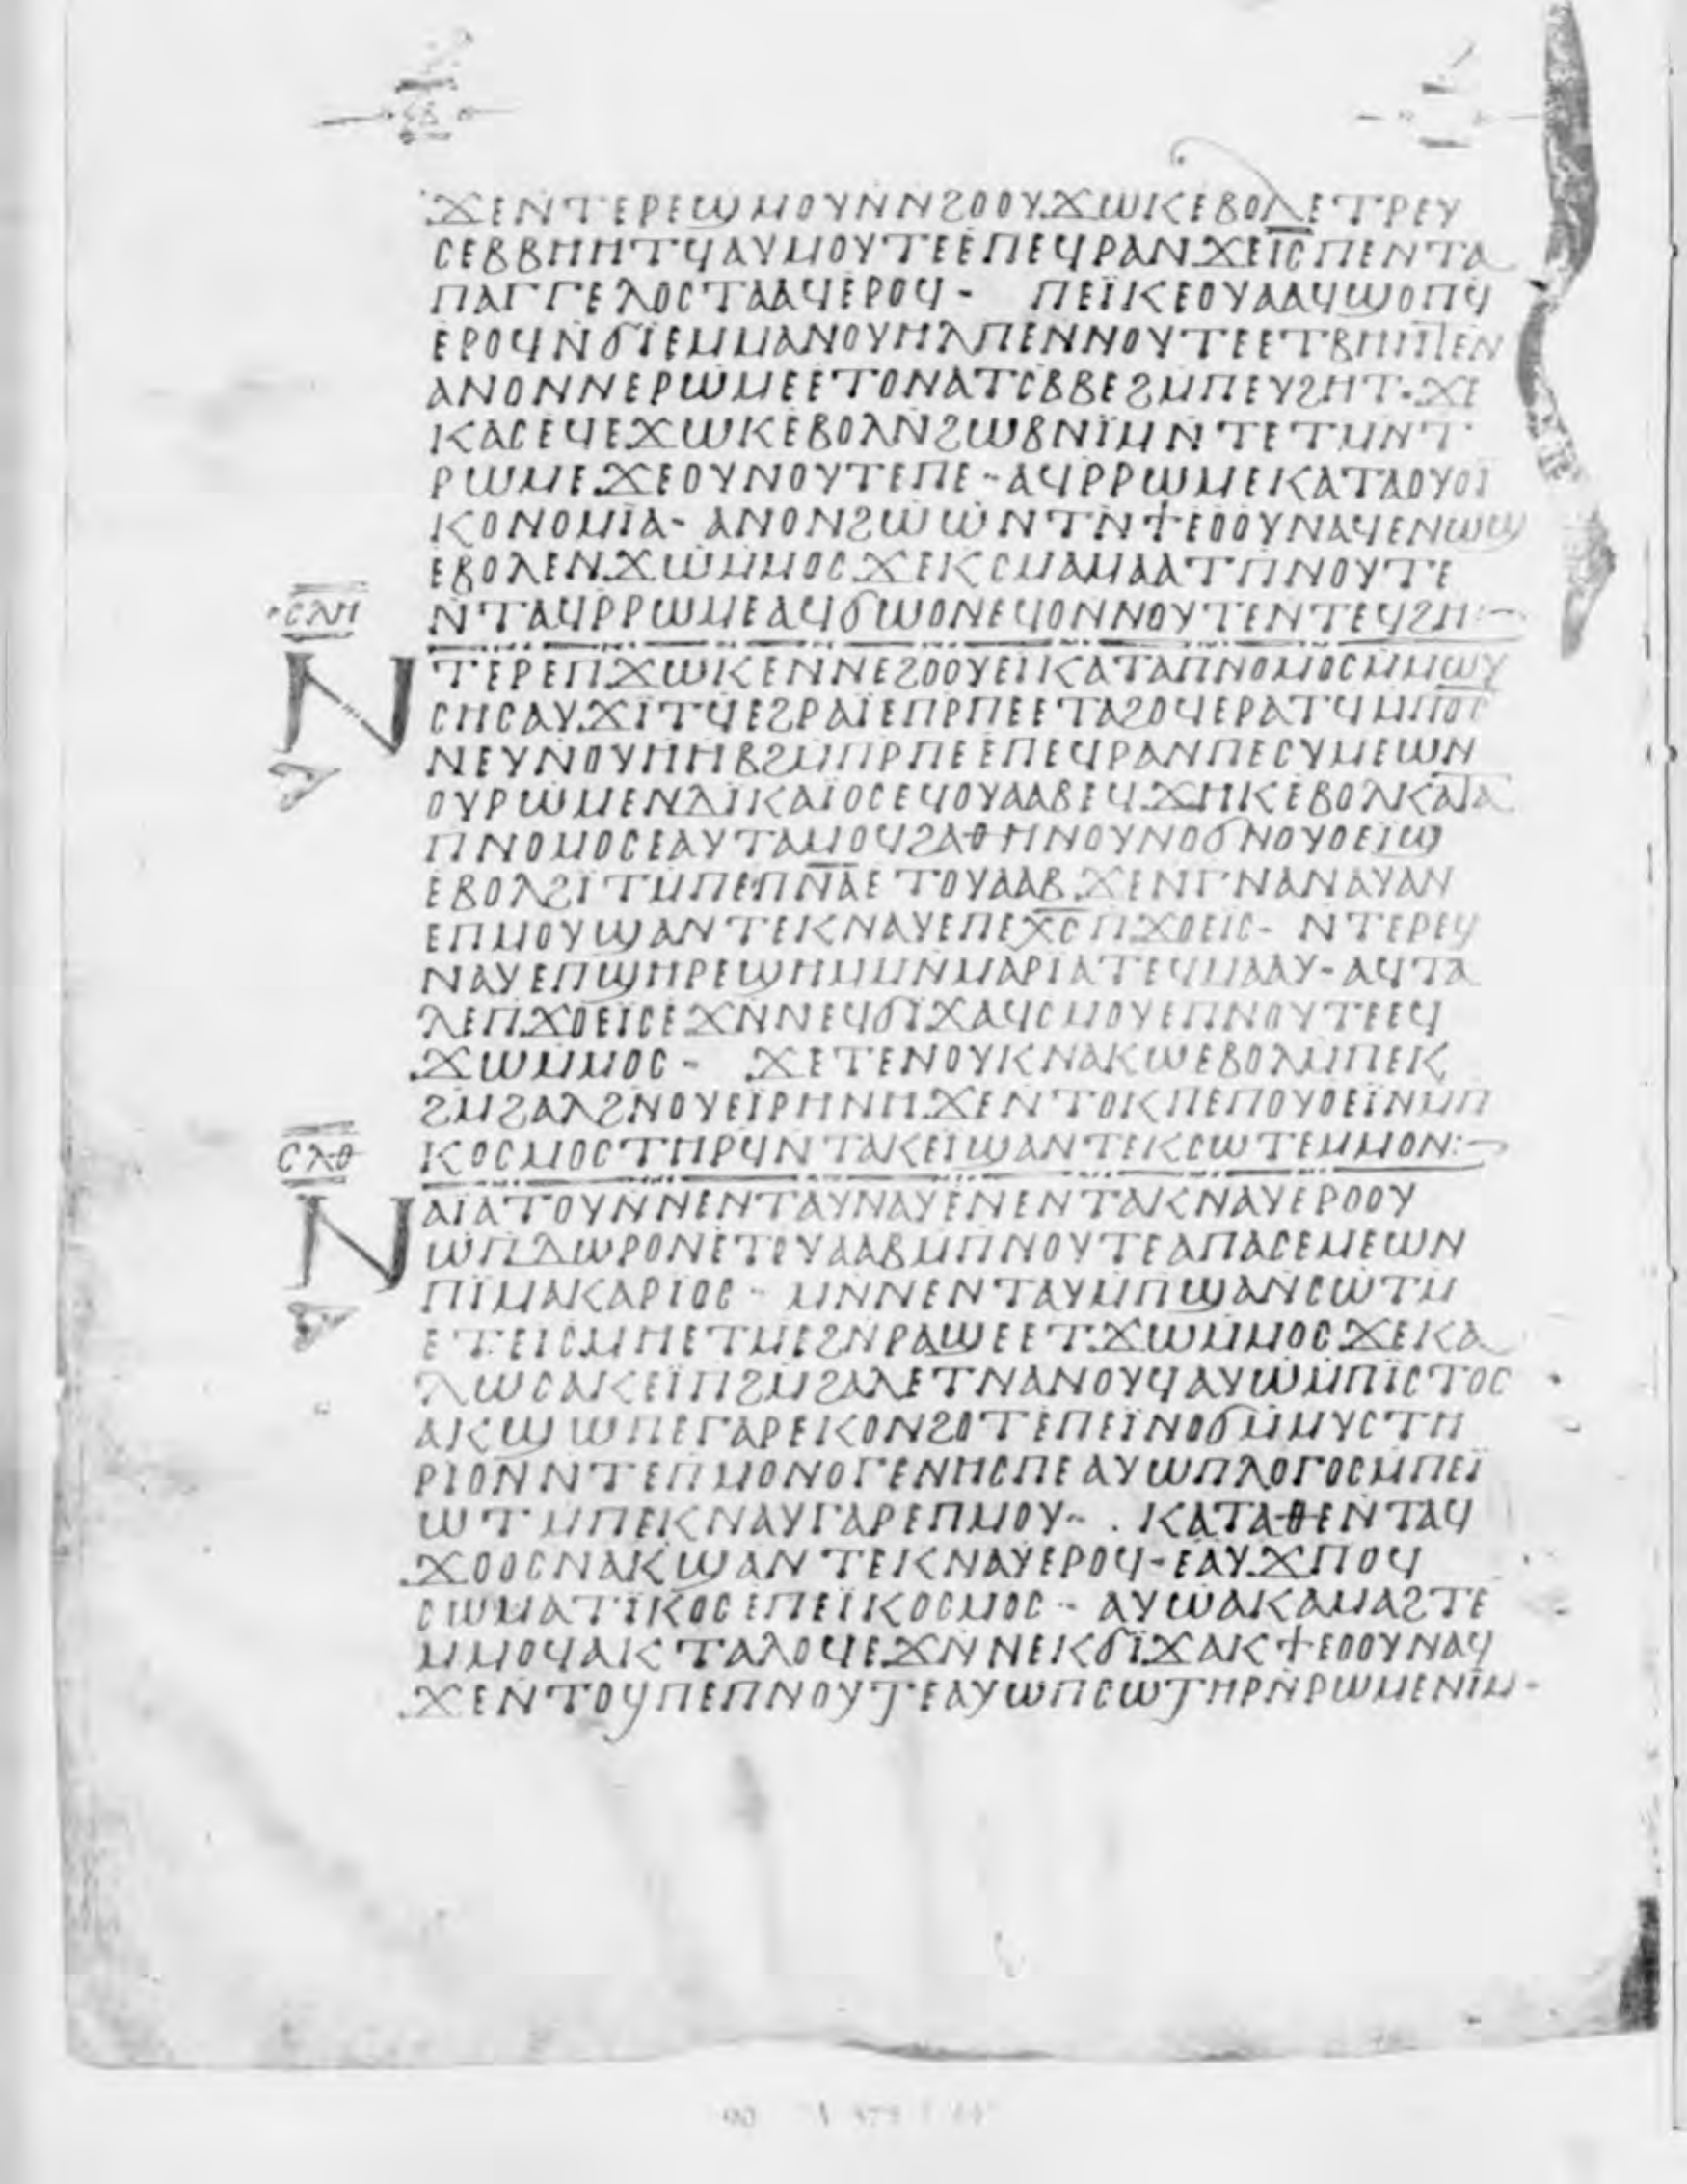 ϫⲉⲛⲧⲉⲣⲉϣⲙⲟⲩⲛⲛϩⲟⲟⲩϫⲱⲕⲉⲃⲟⲗⲉⲧⲣⲉⲩ
ⲥⲉⲃⲃⲏⲏⲧϥⲁⲩⲙⲟⲩⲧⲉⲉⲡⲉϥⲣⲁⲛϫⲉⲓ̅ⲥ̅ⲡⲉⲛⲧⲁ
ⲡⲁⲅⲅⲉⲗⲟⲥⲧⲁⲁϥⲉⲣⲟϥ- ⲡⲉⲓ̈ⲕⲉⲟⲩⲁⲁϥϣⲟⲡϥ
ⲉⲣⲟϥⲛ̇ϭⲓ̈ⲉⲙⲙⲁⲛⲟⲩⲏⲗⲡⲉⲛⲛⲟⲩⲧⲉⲉⲧⲃⲏⲏⲧⲉⲛ
ⲁⲛⲟⲛⲛⲉⲣⲱⲙⲉⲉⲧⲟⲛⲁⲧⲥⲃⲃⲉϩⲙⲡⲉⲩϩⲏⲧ·ϫⲉ
ⲕⲁⲥⲉϥⲉϫⲱⲕⲉⲃⲟⲗⲛ̇ϩⲱⲃⲛⲓ̈ⲙⲛ̇ⲧⲉⲧⲙⲛⲧ
ⲣⲱⲙⲉϫⲉⲟⲩⲛⲟⲩⲧⲉⲡⲉ-ⲁϥⲣⲣⲱⲙⲉⲕⲁⲧⲁⲟⲩⲟⲓ
ⲕⲟⲛⲟⲙⲓ̈ⲁ- ⲁⲛⲟⲛϩⲱⲱⲛⲧⲛϯⲉⲟⲟⲩⲛⲁϥⲉⲛⲱϣ
ⲉⲃⲟⲗⲉⲛϫⲱⲙ̇ⲙⲟⲥϫⲉⲕⲥⲙⲁⲙⲁⲁⲧⲡⲛⲟⲩⲧⲉ
ⲥⲗⲏ
ⲛ̇ⲧⲁϥⲣⲣⲱⲙⲉⲁϥϭⲱⲟⲛⲉϥⲟⲛⲛⲟⲩⲧⲉⲛⲧⲉϥϩⲏ:-
ⲛⲧⲉⲣⲉⲡϫⲱⲕⲉⲛⲛⲉϩⲟⲟⲩⲉⲓ̈ⲕⲁⲧⲁⲡⲛⲟⲙⲟⲥⲙⲙⲱⲩ
ⲥⲏⲥⲁⲩϫⲓ̈ⲧϥⲉϩⲣⲁⲓ̈ⲉⲡⲣⲡⲉⲉⲧⲁϩⲟϥⲉⲣⲁⲧϥⲙⲡⲟ̅ⲥ̅
ⲛⲉⲩⲛ̇ⲟⲩⲏⲏⲃϩⲙ̇ⲡⲣⲡⲉⲉⲡⲉϥⲣⲁⲛⲡⲉⲥⲩⲙⲉⲱⲛ
ⲟⲩⲣⲱⲙⲉⲛⲇⲓ̈ⲕⲁⲓ̈ⲟⲥⲉϥⲟⲩⲁⲁⲃⲉϥϫⲏⲕⲉⲃⲟⲗⲕⲁⲧⲁ
ⲡⲛⲟⲙⲟⲥⲉⲁⲩⲧⲁⲙⲟϥϩⲁⲑⲏⲛⲟⲩⲛⲟϭⲛⲟⲩⲟⲉⲓϣ
ⲉⲃⲟⲗϩⲓ̈ⲧⲙⲡⲉⲡⲛ̅ⲁ̅ⲉⲧⲟⲩⲁⲁⲃϫⲉⲛⲅⲛⲁⲛⲁⲩⲁⲛ
ⲉⲡⲙⲟⲩϣⲁⲛⲧⲉⲕⲛⲁⲩⲉⲡⲉⲭ̅ⲥ̅ⲡϫⲟⲉⲓⲥ- ⲛⲧⲉⲣⲉϥ
ⲛⲁⲩⲉⲡϣⲏⲣⲉϣⲏⲙⲙⲛⲙⲁⲣⲓⲁⲧⲉϥⲙⲁⲁⲩ-ⲁϥⲧⲁ
ⲗⲉⲡϫⲟⲉⲓ̈ⲥⲉϫⲛ̇ⲛⲉϥϭⲓ̈ϫⲁϥⲥⲙⲟⲩⲉⲡⲛⲟⲩⲧⲉⲉϥ
ϫⲱⲙ̇ⲙⲟⲥ- ϫⲉⲧⲉⲛⲟⲩⲕⲛⲁⲕⲱⲉⲃⲟⲗⲙⲡⲉⲕ
ϩⲙϩⲁⲗϩⲛⲟⲩⲉⲓ̈ⲣⲏⲛⲏϫⲉⲛⲧⲟⲕⲡⲉⲡⲟⲩⲟⲉⲓ̈ⲛⲙⲡ
ⲥⲗⲑ
ⲕⲟⲥⲙⲟⲥⲧⲏⲣϥⲛⲧⲁⲕⲉⲓ̈ϣⲁⲛⲧⲉⲕⲥⲱⲧⲉⲙⲙⲟⲛ:-
ⲛⲁⲓ̈ⲁⲧⲟⲩⲛⲛⲉⲛⲧⲁⲩⲛⲁⲩⲉⲛⲉⲛⲧⲁⲕⲛⲁⲩⲉⲣⲟⲟⲩ
ⲱ̇ⲡⲇⲱⲣⲟⲛⲉⲧⲟⲩⲁⲁⲃⲙⲡⲛⲟⲩⲧⲉⲁⲡⲁⲥⲉⲙⲉⲱⲛ
ⲡⲓ̈ⲙⲁⲕⲁⲣⲓⲟⲥ- ⲙⲛⲛⲉⲛⲧⲁⲩⲙⲡϣⲁⲛⲥⲱⲧⲙ
ⲉⲧⲉⲓⲥⲙⲏⲉⲧⲙⲉϩⲛⲣⲁϣⲉⲉⲧϫⲱⲙ̇ⲙⲟⲥϫⲉⲕⲁ
ⲗⲱⲥⲁⲕⲉⲓ̈ⲡϩⲙϩⲁⲗⲉⲧⲛⲁⲛⲟⲩϥⲁⲩⲱⲙ̇ⲡⲓ̈ⲥⲧⲟⲥ
ⲁⲕϣⲱⲡⲉⲅⲁⲣⲉⲕⲟⲛϩⲟⲧⲉⲡⲉⲓ̈ⲛⲟϭⲙ̇ⲙⲩⲥⲧⲏ
ⲣⲓⲟⲛ̇ⲛⲧⲉⲡⲙⲟⲛⲟⲅⲉⲛⲏⲥⲡⲉⲁⲩⲱⲡⲗⲟⲅⲟⲥⲙⲡⲉⲓ̈
ⲱⲧⲙⲡⲉⲕⲛⲁⲩⲅⲁⲣⲉⲡⲙⲟⲩ- .ⲕⲁⲧⲁⲑⲉⲛⲧⲁϥ
ϫⲟⲟⲥⲛⲁⲕϣⲁⲛⲧⲉⲕⲛⲁⲩⲉⲣⲟϥ-ⲉⲁⲩϫⲡⲟϥ
ⲥⲱⲙⲁⲧⲓ̈ⲕⲟⲥⲉⲡⲉⲓ̈ⲕⲟⲥⲙⲟⲥ- ⲁⲩⲱⲁⲕⲁⲙⲁϩⲧⲉ
ⲙⲙⲟϥⲁⲕⲧⲁⲗⲟϥⲉϫⲛ̇ⲛⲉⲕϭⲓ̈ϫⲁⲕϯⲉⲟⲟⲩⲛⲁϥ
ϫⲉⲛⲧⲟϥⲡⲉⲡⲛⲟⲩⲧⲉⲁⲩⲱⲡⲥⲱⲧⲏⲣⲛ̇ⲣⲱⲙⲉⲛⲓ̈ⲙ-